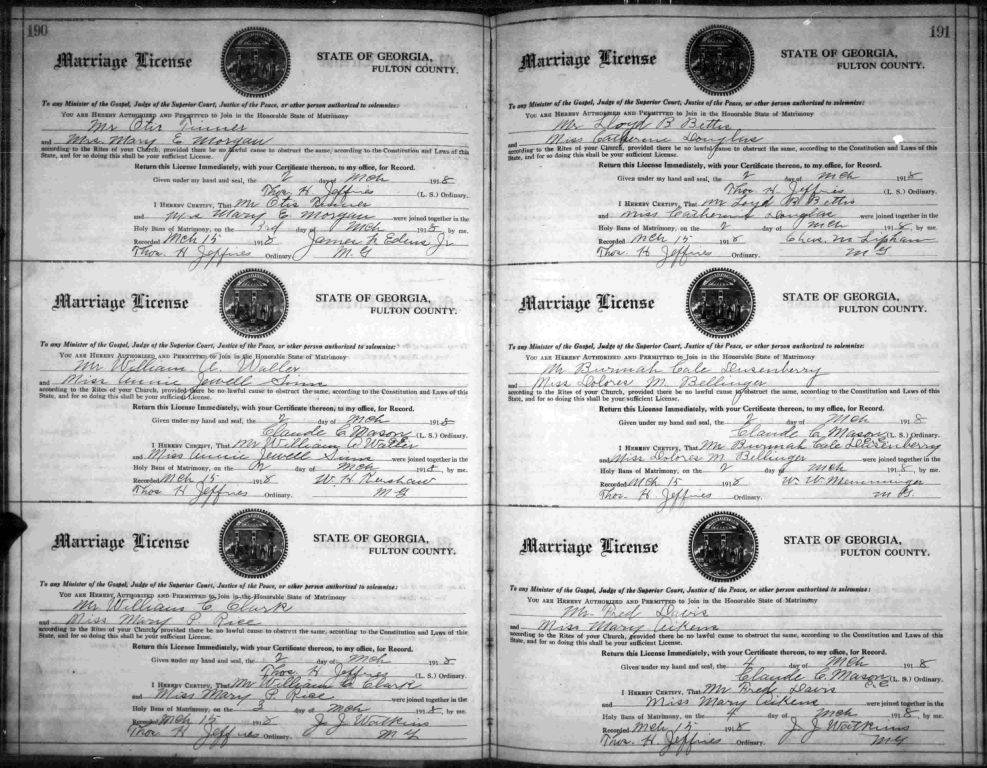 190
Marriage License
STATE OF GEORGIA,
FULTON COUNTY.
To any Minister of the Gospel, Judge of the Superior Court, Justice of the Peace, or other person authorized to solemnize:
YOU ARE HEREBY AUTHORIZED AND PERMITTED to Join in the Honorable State of Matrimony
Mr Otis
and Mrs. Mary E Morgan
according to the Rites of your Church, provided there be no lawful cause to obstruct the same, according to the Constitution and Laws of this
State, and for so doing this shall be your sufficient License.
Return this License Immediately, with your Certificate thereon, to my office, for Record.
Given under my hand and seal, the 2 day of Mch 1918
Thos. H Jeffries (L. S.) Ordinary.
I HEREBY CERTIFY, That Mr Otis
and Mrs Mary E Morgan were joined together in the
Holy Bans of Matrimony, on the 3rd day of Mch 1918 by me.
Recorded Mch 15 1918 James
Thos. H Jeffries Ordinary. M. G
Marriage License
STATE OF GEORGIA,
FULTON COUNTY.
To any Minister of the Gospel, Judge of the Superior Court, Justice of the Peace, or other person authorized to solemnize:
YOU ARE HEREBY AUTHORIZED AND PERMITTED to Join in the Honorable State of Matrimony
Mr William A. Waller
and Miss Annie Jewell Sims
according to the Rites of your Church, provided there be no lawful cause to obstruct the same, according to the Constitution and Laws of this
State, and for so doing this shall be your sufficient License.
Return this License Immediately, with your Certificate thereon, to my office, for Record.
Given under my hand and seal, the 2 day of Mch 1918
Claude C Mason (L. S.) Ordinary.
I HEREBY CERTIFY, That Mr William A Waller
and Miss Annie Jewell Sims were joined together in the
Holy Bans of Matrimony, on the 2 day of Mch 1918, by me.
Recorded Mch 15 1918 W. H
Thos H Jeffries Ordinary. M G
Marriage License
STATE OF GEORGIA,
FULTON COUNTY.
To any Minister of the Gospel, Judge of the Superior Court, Justice of the Peace, or other person authorized to solemnize:
YOU ARE HEREBY AUTHORIZED AND PERMITTED to Join in the Honorable State of Matrimony
Mr William C Clark
and Miss Mary P. Rice
according to the Rites of your Church, provided there be no lawful cause to obstruct the same, according to the Constitution and Laws of this
State, and for so doing this shall be your sufficient License.
Return this License Immediately, with your Certificate thereon, to my office, for Record.
Given under my hand and seal, the 2 day of Mch 1918
Thos H Jeffries (L. S.) Ordinary.
I HEREBY CERTIFY, That Mr William C Clark
and Miss Mary P Rice were joined together in the
Holy Bans of Matrimony, on the 3 day of Mch 1918, by me.
Recorded Mch 15 1918 J J Watkins
Thos H Jeffries Ordinary. M G
191
Marriage License
STATE OF GEORGIA,
FULTON COUNTY.
To any Minister of the Gospel, Judge of the Superior Court, Justice of the Peace, or other person authorized to solemnize:
YOU ARE HEREBY AUTHORIZED AND PERMITTED to Join in the Honorable State of Matrimony
Mr Lloyd B Bettis
and Miss Catherine Douglas
according to the Rites of your Church, provided there be no lawful cause to obstruct the same, according to the Constitution and Laws of this
State, and for so doing this shall be your sufficient License.
Return this License Immediately, with your Certificate thereon, to my office, for Record.
Given under my hand and seal, the 2 day of Mch 1918
Thos H Jeffries (L. S.) Ordinary.
I HEREBY CERTIFY, That Mr Loyd B Bettis
and Miss Catherine Douglas were joined together in the
Holy Bans of Matrimony, on the 2 day of Mch 1918, by me.
Recorded Mch 15 1918 Chas. M Lipham
Thos. H Jeffries Ordinary. M G
Marriage License
STATE OF GEORGIA,
FULTON COUNTY.
To any Minister of the Gospel, Judge of the Superior Court, Justice of the Peace, or other person authorized to solemnize:
YOU ARE HEREBY AUTHORIZED AND PERMITTED to Join in the Honorable State of Matrimony
Mr Burmah Cale Dusenberry
and Miss Dolores M. Bellinger
according to the Rites of your Church, provided there be no lawful cause to obstruct the same, according to the Constitution and Laws of this
State, and for so doing this shall be your sufficient License.
Return this License Immediately, with your Certificate thereon, to my office, for Record.
Given under my hand and seal, the 2 day of Mch 1918
Claude C. Mason (L. S.) Ordinary.
I HEREBY CERTIFY, That Mr Burmah Cale Dusenberry
and Miss Dolores M. Bellinger were joined together in the
Holy Bans of Matrimony, on the 2 day of Mch 1918, by me.
Recorded Mch 15 1918 W. W Memminger
Thos. H Jeffries Ordinary. M G.
Marriage License
STATE OF GEORGIA,
FULTON COUNTY.
To any Minister of the Gospel, Judge of the Superior Court, Justice of the Peace, or other person authorized to solemnize:
YOU ARE HEREBY AUTHORIZED AND PERMITTED to Join in the Honorable State of Matrimony
Mr Fred Davis
and Miss Mary Aikens
according to the Rites of your Church, provided there be no lawful cause to obstruct the same, according to the Constitution and Laws of this
State, and for so doing this shall be your sufficient License.
Return this License Immediately, with your Certificate thereon, to my office, for Record.
Given under my hand and seal, the 4 day of Mch 1918
Claude C Mason (L. S.) Ordinary.
I HEREBY CERTIFY, That Mr Fred Davis
and Miss Mary Aikens were joined together in the
Holy Bans of Matrimony, on the 4 day of Mch 1918, by me.
Recorded Mch 15 1918 J J Watkins
Thos. H Jeffries Ordinary. M G